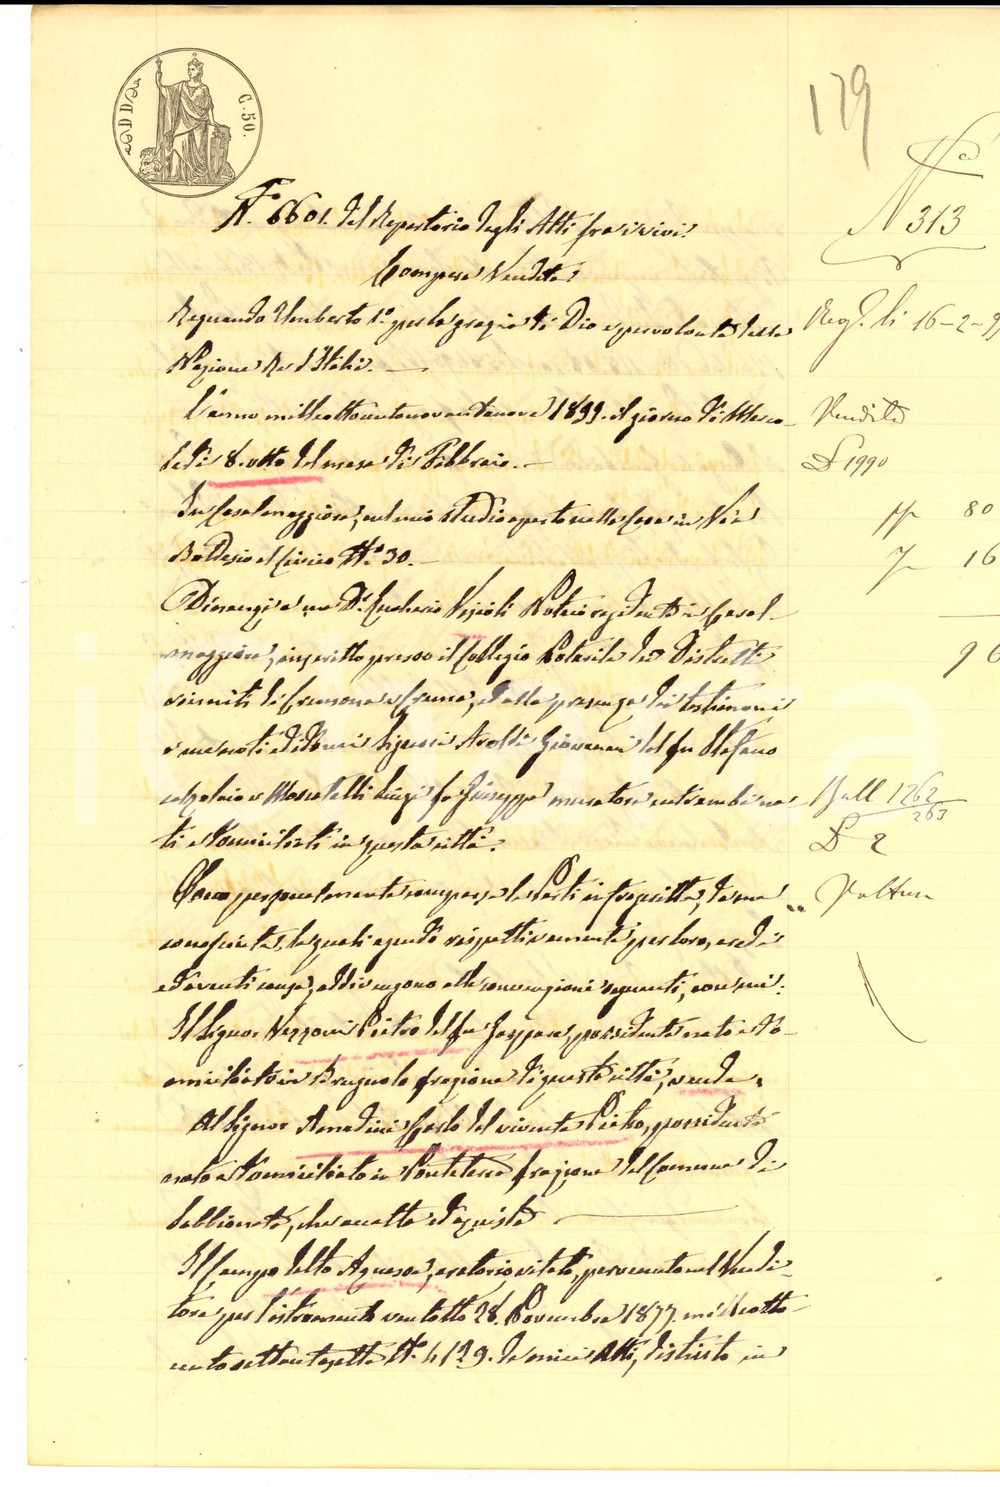 C. 50.
179
N. 6601. del Repertorio degli Atti fra i vivi.
N 313
Compra Vendita
Regnando Umberto 1° per la grazia di Dio e per volontà della
Reg. li 16-2-99
Nazione Re d'Italia.
L'anno milleottocentonovantanove 1899. il giorno di Merco-
Vendita
ledì 8. otto del mese di Febbraio.
£ 1990
In Casalmaggiore, nel mio studio aperto nella Casa in Via
80
Baldesio al Civico N.° 30.
16
Dinanzi a me Dr. Notaio residente in Casal-
maggiore, inscritto presso il Collegio Notarile dei Distretti
96
riuniti di Cremona e Crema, ed alla presenza dei testimoni
a me noti ed idonei Signori Araldi Giovanni del fu Stefano
calzolaio e Moscatelli Luigi fu Giuseppe muratore entrambi na-
Boll 1262
263
ti e domiciliati in questa città.
£ 2
Sono personalmente comparse le Parti infrascritte, da me
Voltura
conosciute, le quali agendo rispettivamente per loro, eredi
ed aventi causa, addivengono alle convenzioni seguenti, con cui:
Il Signor Vezzoni Pietro del fu Gaspare, possidente nato e do-
miciliato in Brugnolo frazione di questa città, vende
Al Signor Amadini Carlo del vivente Pietro, possidente
nato e domiciliato in Ponteterra frazione del Comune di
Sabbioneta, che accetta ed acquista
Il Campo detto aratorio vitato, pervenuto nel Vendi-
tore per l'istromento ventotto 28. Novembre 1877. milleotto-
centosettantasette N. 4129. de' miei Atti, distinto in